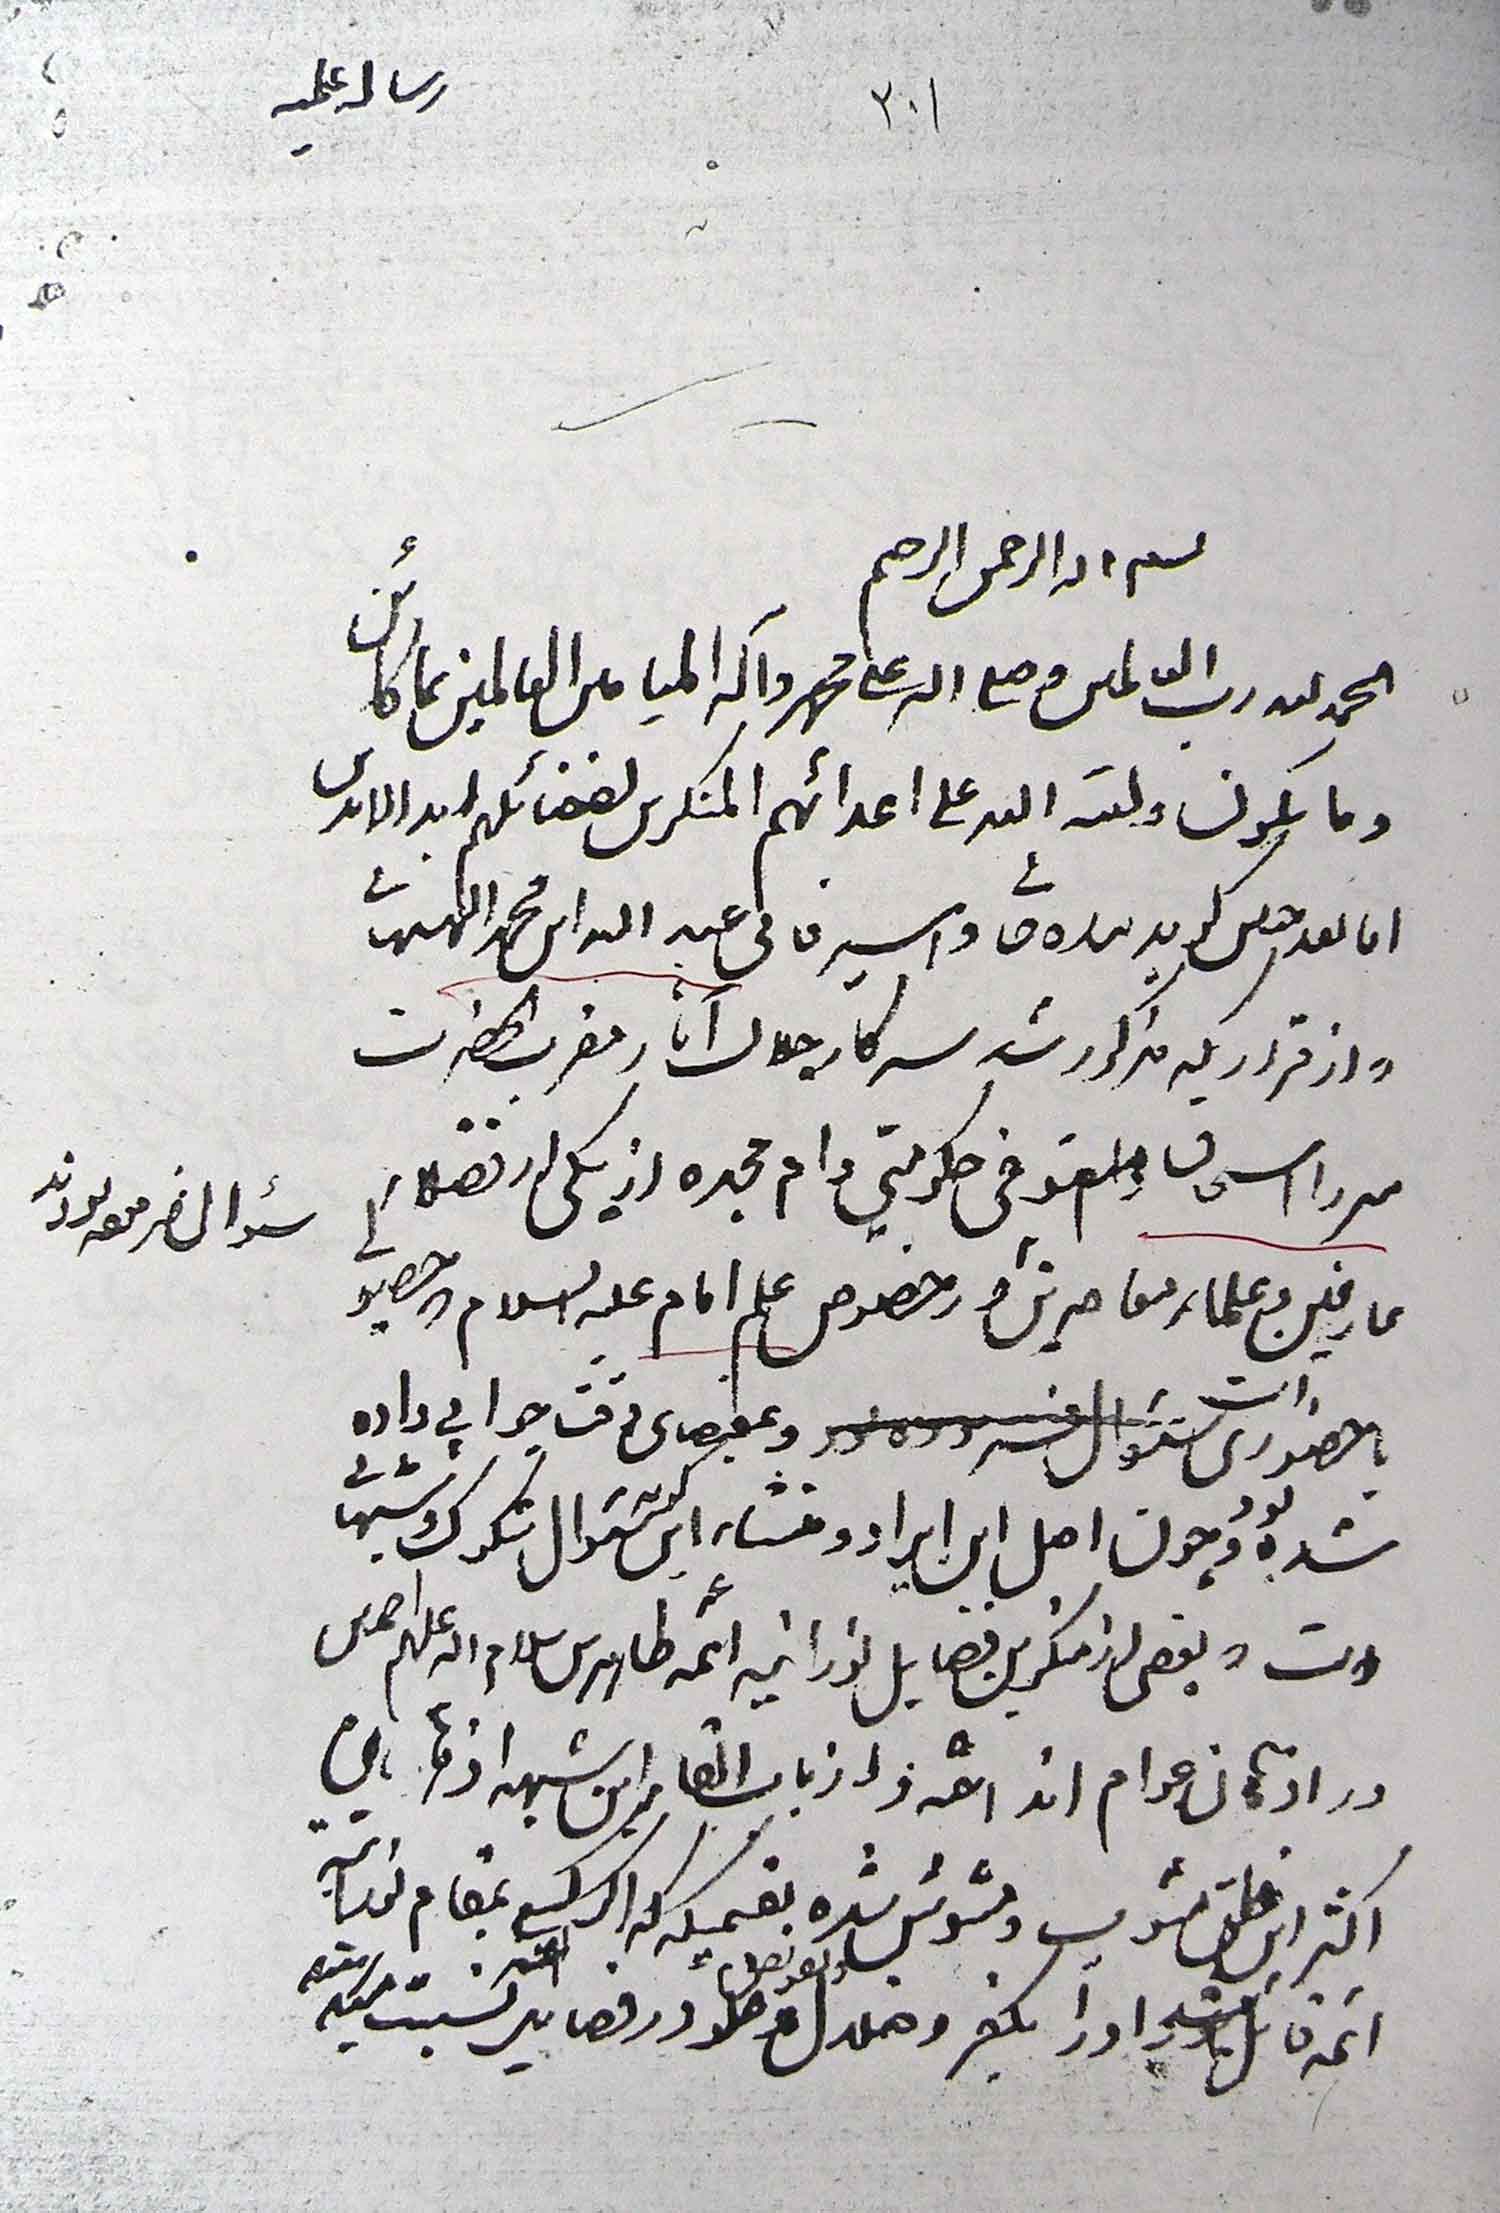 ۲۰۱
رساله علمیه
بسم الله الرحمن الرحیم
الحمد لله رب العالمین و صلی الله علی محمد و آله المیامین العالمین بما کان
و ما یکون و لعنة الله علی اعدائهم المنکرین لفضائلهم ابد الابدین
اما بعد چنین گوید بنده و اسیر فانی عبد الله ابن محمد
و از قراریکه مذکور شد سرکار جلالت آثار مقرب الحضرت
میرزا دام مجده از یکی از فضلای
سؤال فرموده بودند
عارفین و علمای معاصرین در خصوص علم امام علیه السلام حصولی
یا حضوری است سئوال و بمقتضای وقت جوابی داده
شده بود و چون اصل این ایراد و منشاء این گونه سئوال شکوک و شبهاتی
است که بعضی از منکرین فضایل نورانیه ائمه طاهرین سلام الله علیهم اجمعین
در اذهان عوام انداخته و از باب القای این شبهه اذهان
اکثر این خلق مشوب و مشوش شده بقسمیکه که اگر کسی بمقام نورانیت
ائمه قائل باشد او را بکفر و ضلال و غلو در فضایل نسبت میدهند